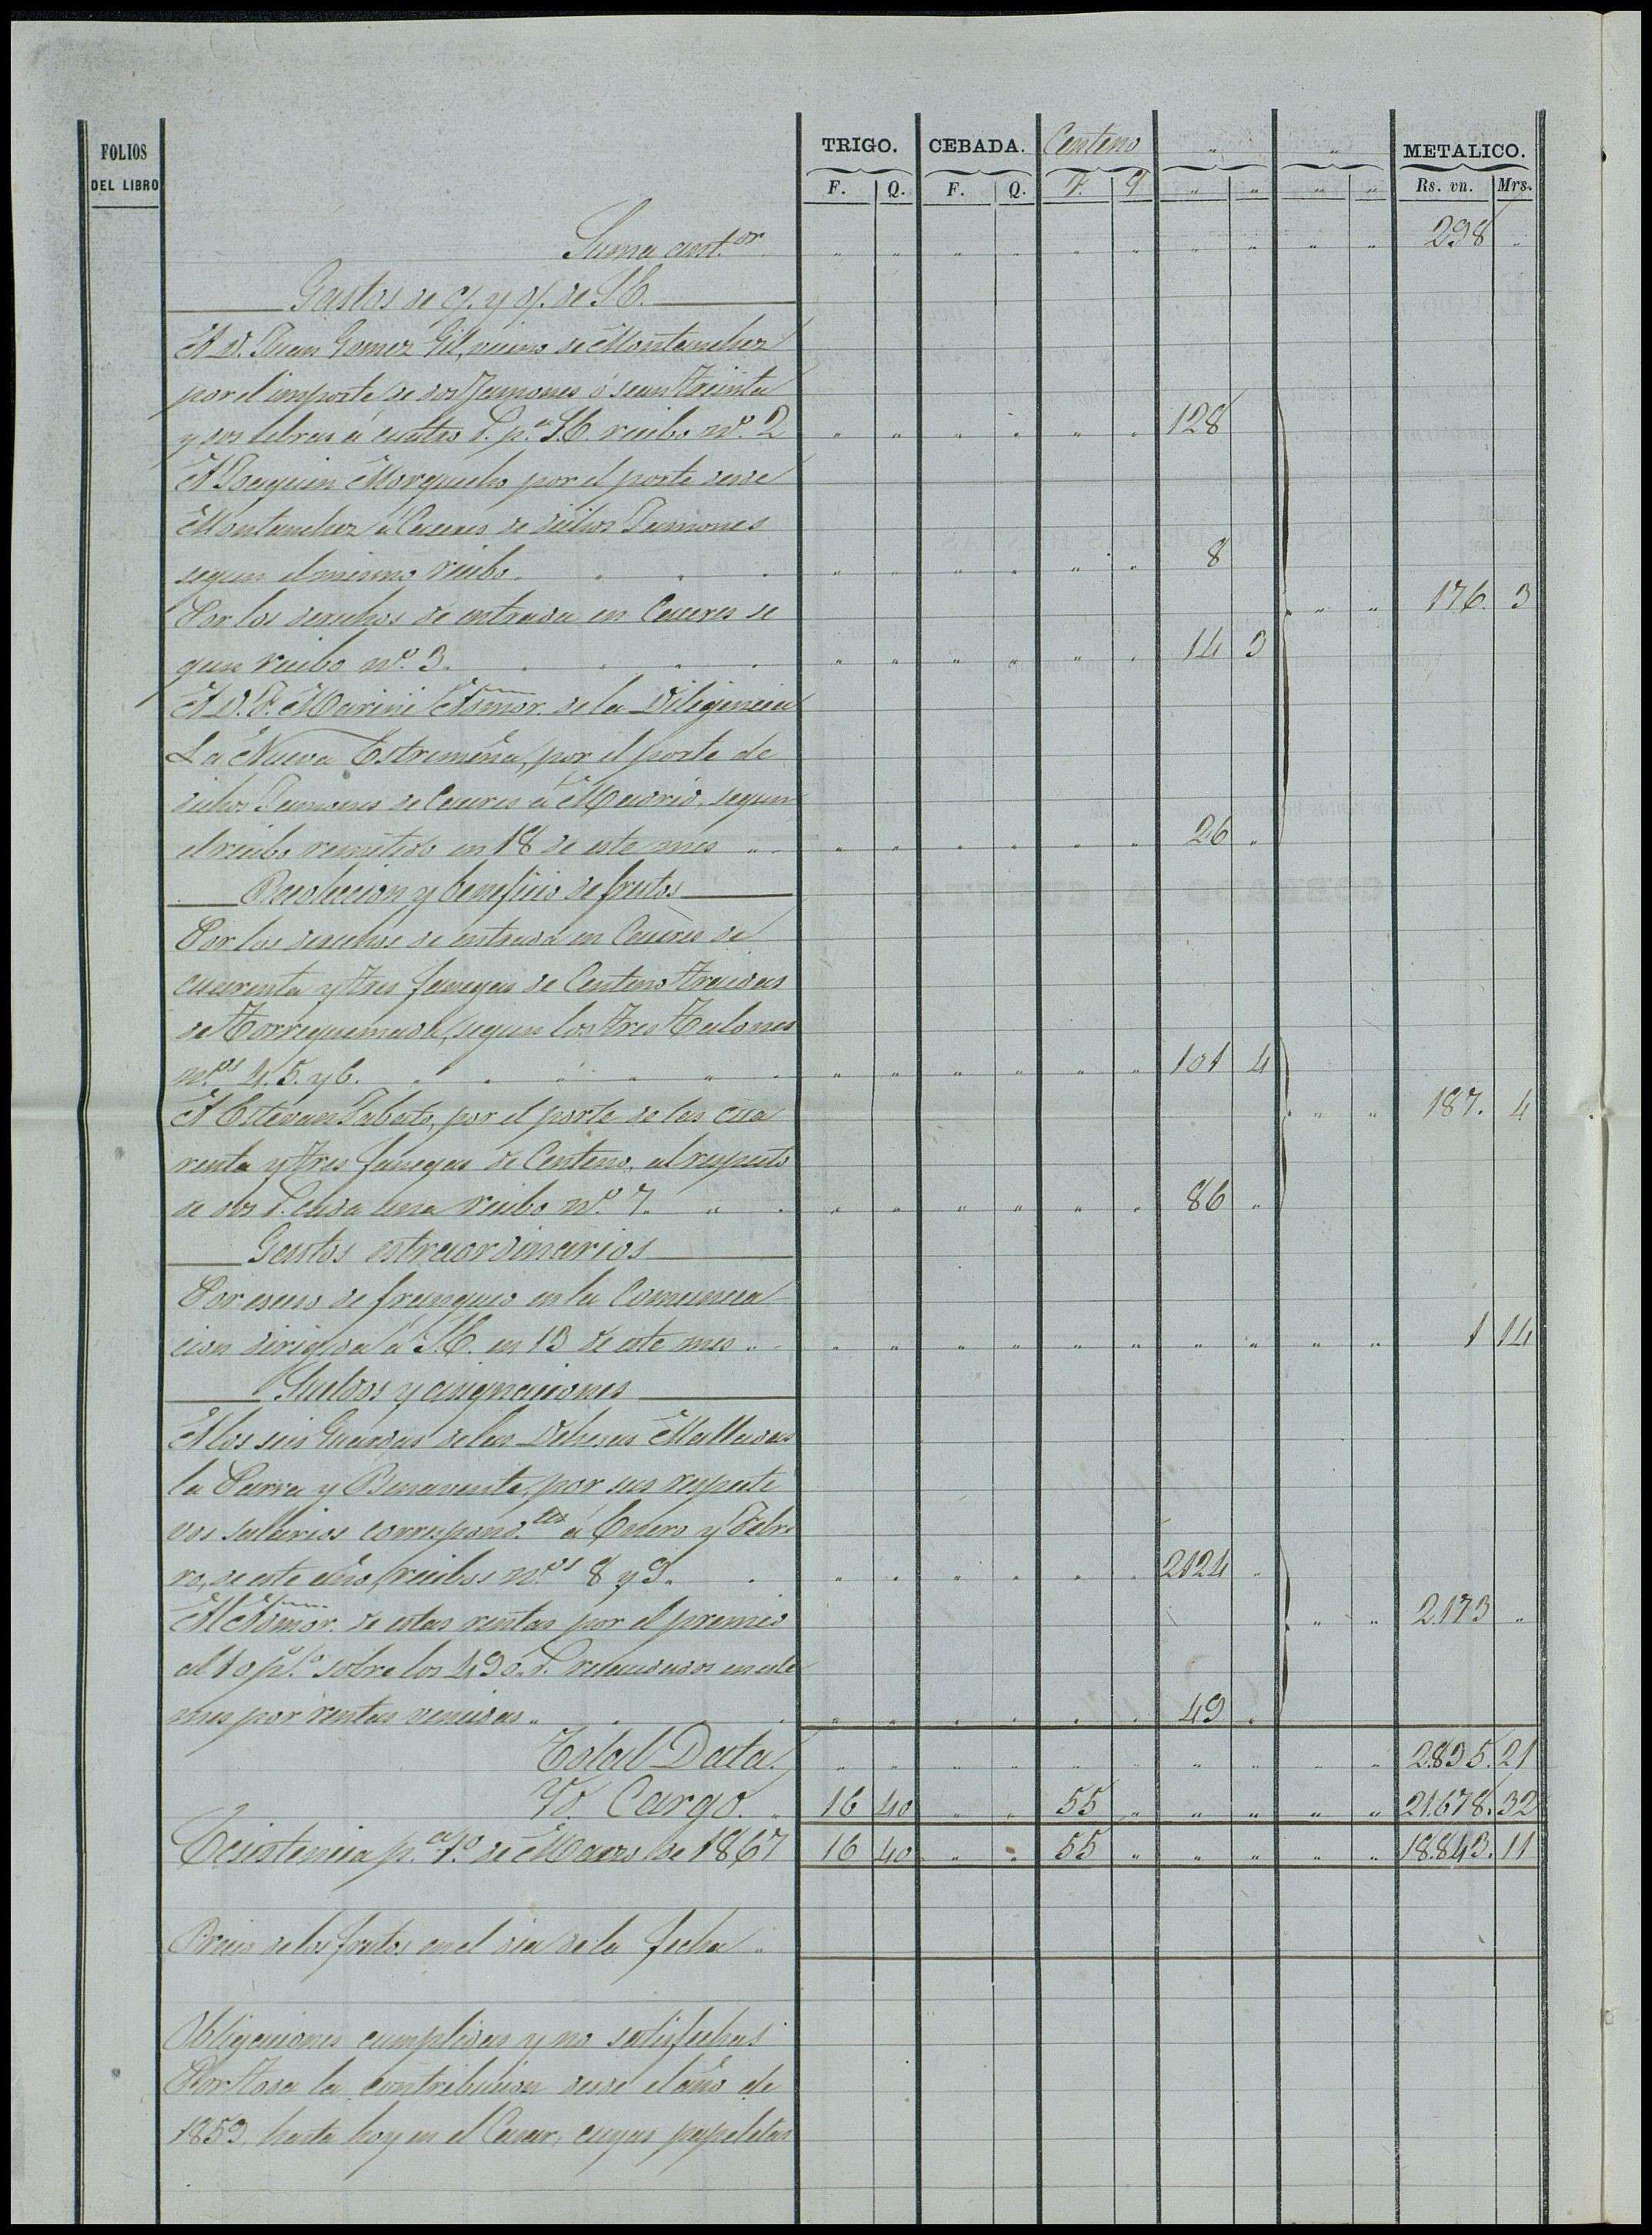 FOLIOS DEL LIBRO TRIGO. CEBADA. Centeno " " METALICO.
F. Q. F. Q. F. Q " " " " Rs. vn. Mrs.
Suma ant.or " " " " " " " " " " 298 "
Gastos de c/. y o/. de S.E.
A D. Juan Gomez Gil, vecino de Montanchez
por el importe de dos Jamones ó sean treinta
y dos libras á cuatro r. p.a S.E. recibo n.o 2 " " " " " " 128
A Joaquin Morgucho por el porte desde
Montanchez á Caceres de dichos Jamones
segun el mismo recibo. " " " " " " 8
" " 176. 3
Por los derechos de entrada en Caceres se
gun recibo n.o 3. " " " " " " 14 3
A D. F. Marini Admor. de la Diligencia
La Nueva Estremeña, por el porte de
dichos Jamones de Caceres á Madrid, segun
el recibo remitido en 18 de este mes " " " " " " " 26 "
Recoleccion y beneficio de frutos
Por los derechos de entrada en Caceres de
cuarenta y tres fanegas de Centeno traidas
de Torrequemada, segun los tres talones
n.os 4. 5. y 6. " " " " " " 101 4
" " 187. 4
A Estevan Sabate, por el porte de las cua
renta y tres fanegas de Centeno, al respecto
de dos r. cada una recibo n.o 7. " " " " " " 86 "
Gastos estraordinarios
Por esceso de franqueo en la Comunica
cion dirigida á S.E. en 13 de este mes " " " " " " " " " " " 1 14
Sueldos y asignaciones
A los seis Guardas de las Dehesas Malladas
la Parra y Benavente, por sus respecti
vos salarios correspond.tes á Enero y Febre
ro, de este año, recibos n.os 8 y 9. " " " " " " 2124 "
" " 2.173 "
Al Admor. de estas rentas por el premio
al 10 p.o/o sobre los 490. r. recaudados en este
mes por rentas vencidas " " " " " " " 49 "
Total Data. " " " " " " " " " " 2.835. 21
Yd. Cargo. 16 40 " " 55 " " " " " 21.678. 32
Ecsistencia p.a 1.o de Marzo de 1867 16 40 " " 55 " " " " " 18.843. 11
Precio de los frutos en el dia de la fecha "
Obligaciones cumplidas y no satisfechas
Por toda la contribucion desde el año de
1859, hasta hoy en el Casar, cuyas papeletas